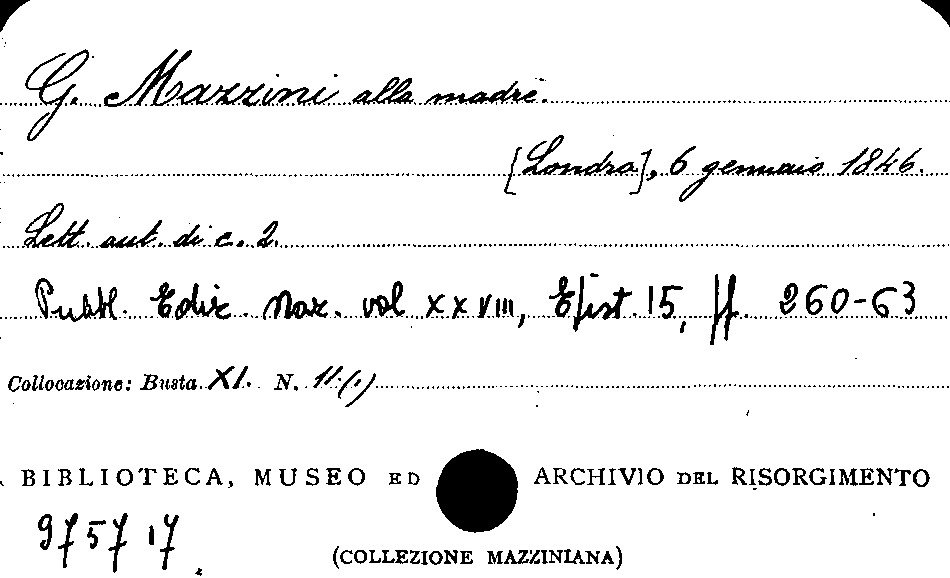 G. Mazzini alla madre.
[Londra], 6 gennaio 1846.
Lett. aut. di c. 2.
Pubbl. Ediz. Naz. vol XXVIII, Epist. 15, pp. 260-63
Collocazione: Busta XI. N. 11.(1)
BIBLIOTECA, MUSEO ED ARCHIVIO DEL RISORGIMENTO
975717
(COLLEZIONE MAZZINIANA)